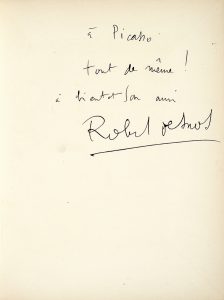 à Picasso
tout de même !
à bientôt son ami
Robert Desnos